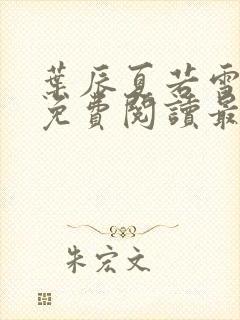 葉辰夏若雪
免費閱讀最
朱宏文